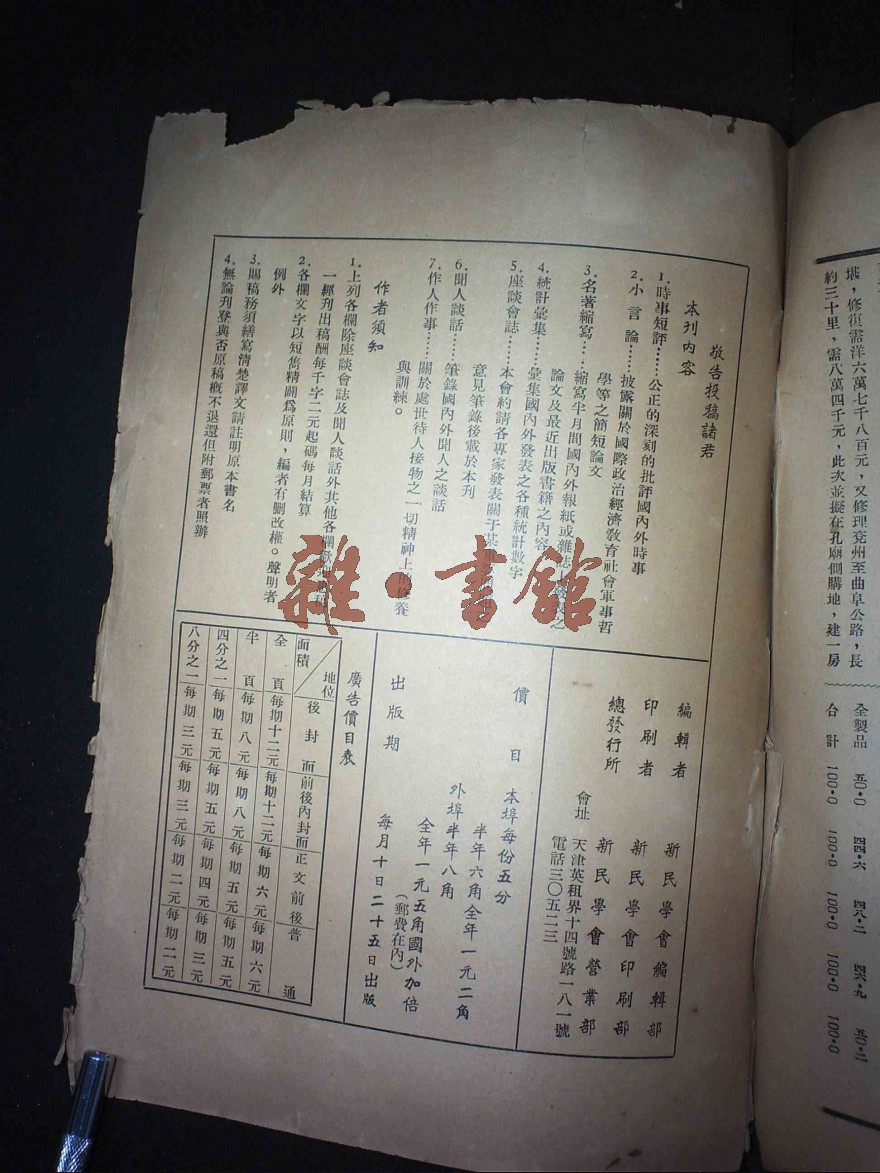 堪，修復需洋六萬七千八百元，又修理兗州至曲阜公路，長
約三十里，需八萬四千元，此次並擬在孔廟側購地，建一房
全製品 五〇·〇 四四·六 四八·二 四六·九 五〇·二
合計 100·0 100·0 100·0 100·0 100·0
敬告投稿諸君
本刊内容
1.時事短評……公正的深刻的批評國内外時事
2.小言論……披露關於國際政治經濟敎育社會軍事哲
學等之簡短論文
3.名著縮寫……縮寫半月間國内外報紙或雜誌
之
論文及最近出版書籍之内容
4.統計彙集……彙集國内外發表之各種統計數字
5.座談會誌……本會約請各專家發表關于某
意見筆錄後載於本刊
6.聞人談話……筆錄國内外聞人之談話
7.作人作事……關於處世待人接物之一切精神上的修養
與訓練。
作者須知
1.上列各欄除座談會誌及聞人談話外其他各欄歡
一經刊出稿酬每千字二元起碼每月結算
2.各欄文字以短雋精闢爲原則，編者有删改權。聲明者
例外
3.賜稿務須繕寫清楚譯文請註明原本書名
4.無論刊登與否原稿概不退還但附郵票者照辦
雜·書館
編輯者 新民學會編輯部
印刷者 新民學會印刷部
總發行所 新民學會營業部
會址 天津英租界十四號路一八一號
電話三〇五二三
價目 本埠每份五分
半年六角全年一元二角
外埠半年八角
全年一元五角國外加倍
（郵費在内）
出版期 每月十日二十五日出版
廣告價目表
地位 面積 後封面 前後内封面 正文前後 普通
全頁 每期十二元 每期十二元 每期六元 每期六元
半頁 每期八元 每期八元 每期五元 每期五元
四分之一 每期五元 每期五元 每期四元 每期三元
八分之一 每期三元 每期三元 每期二元 每期二元